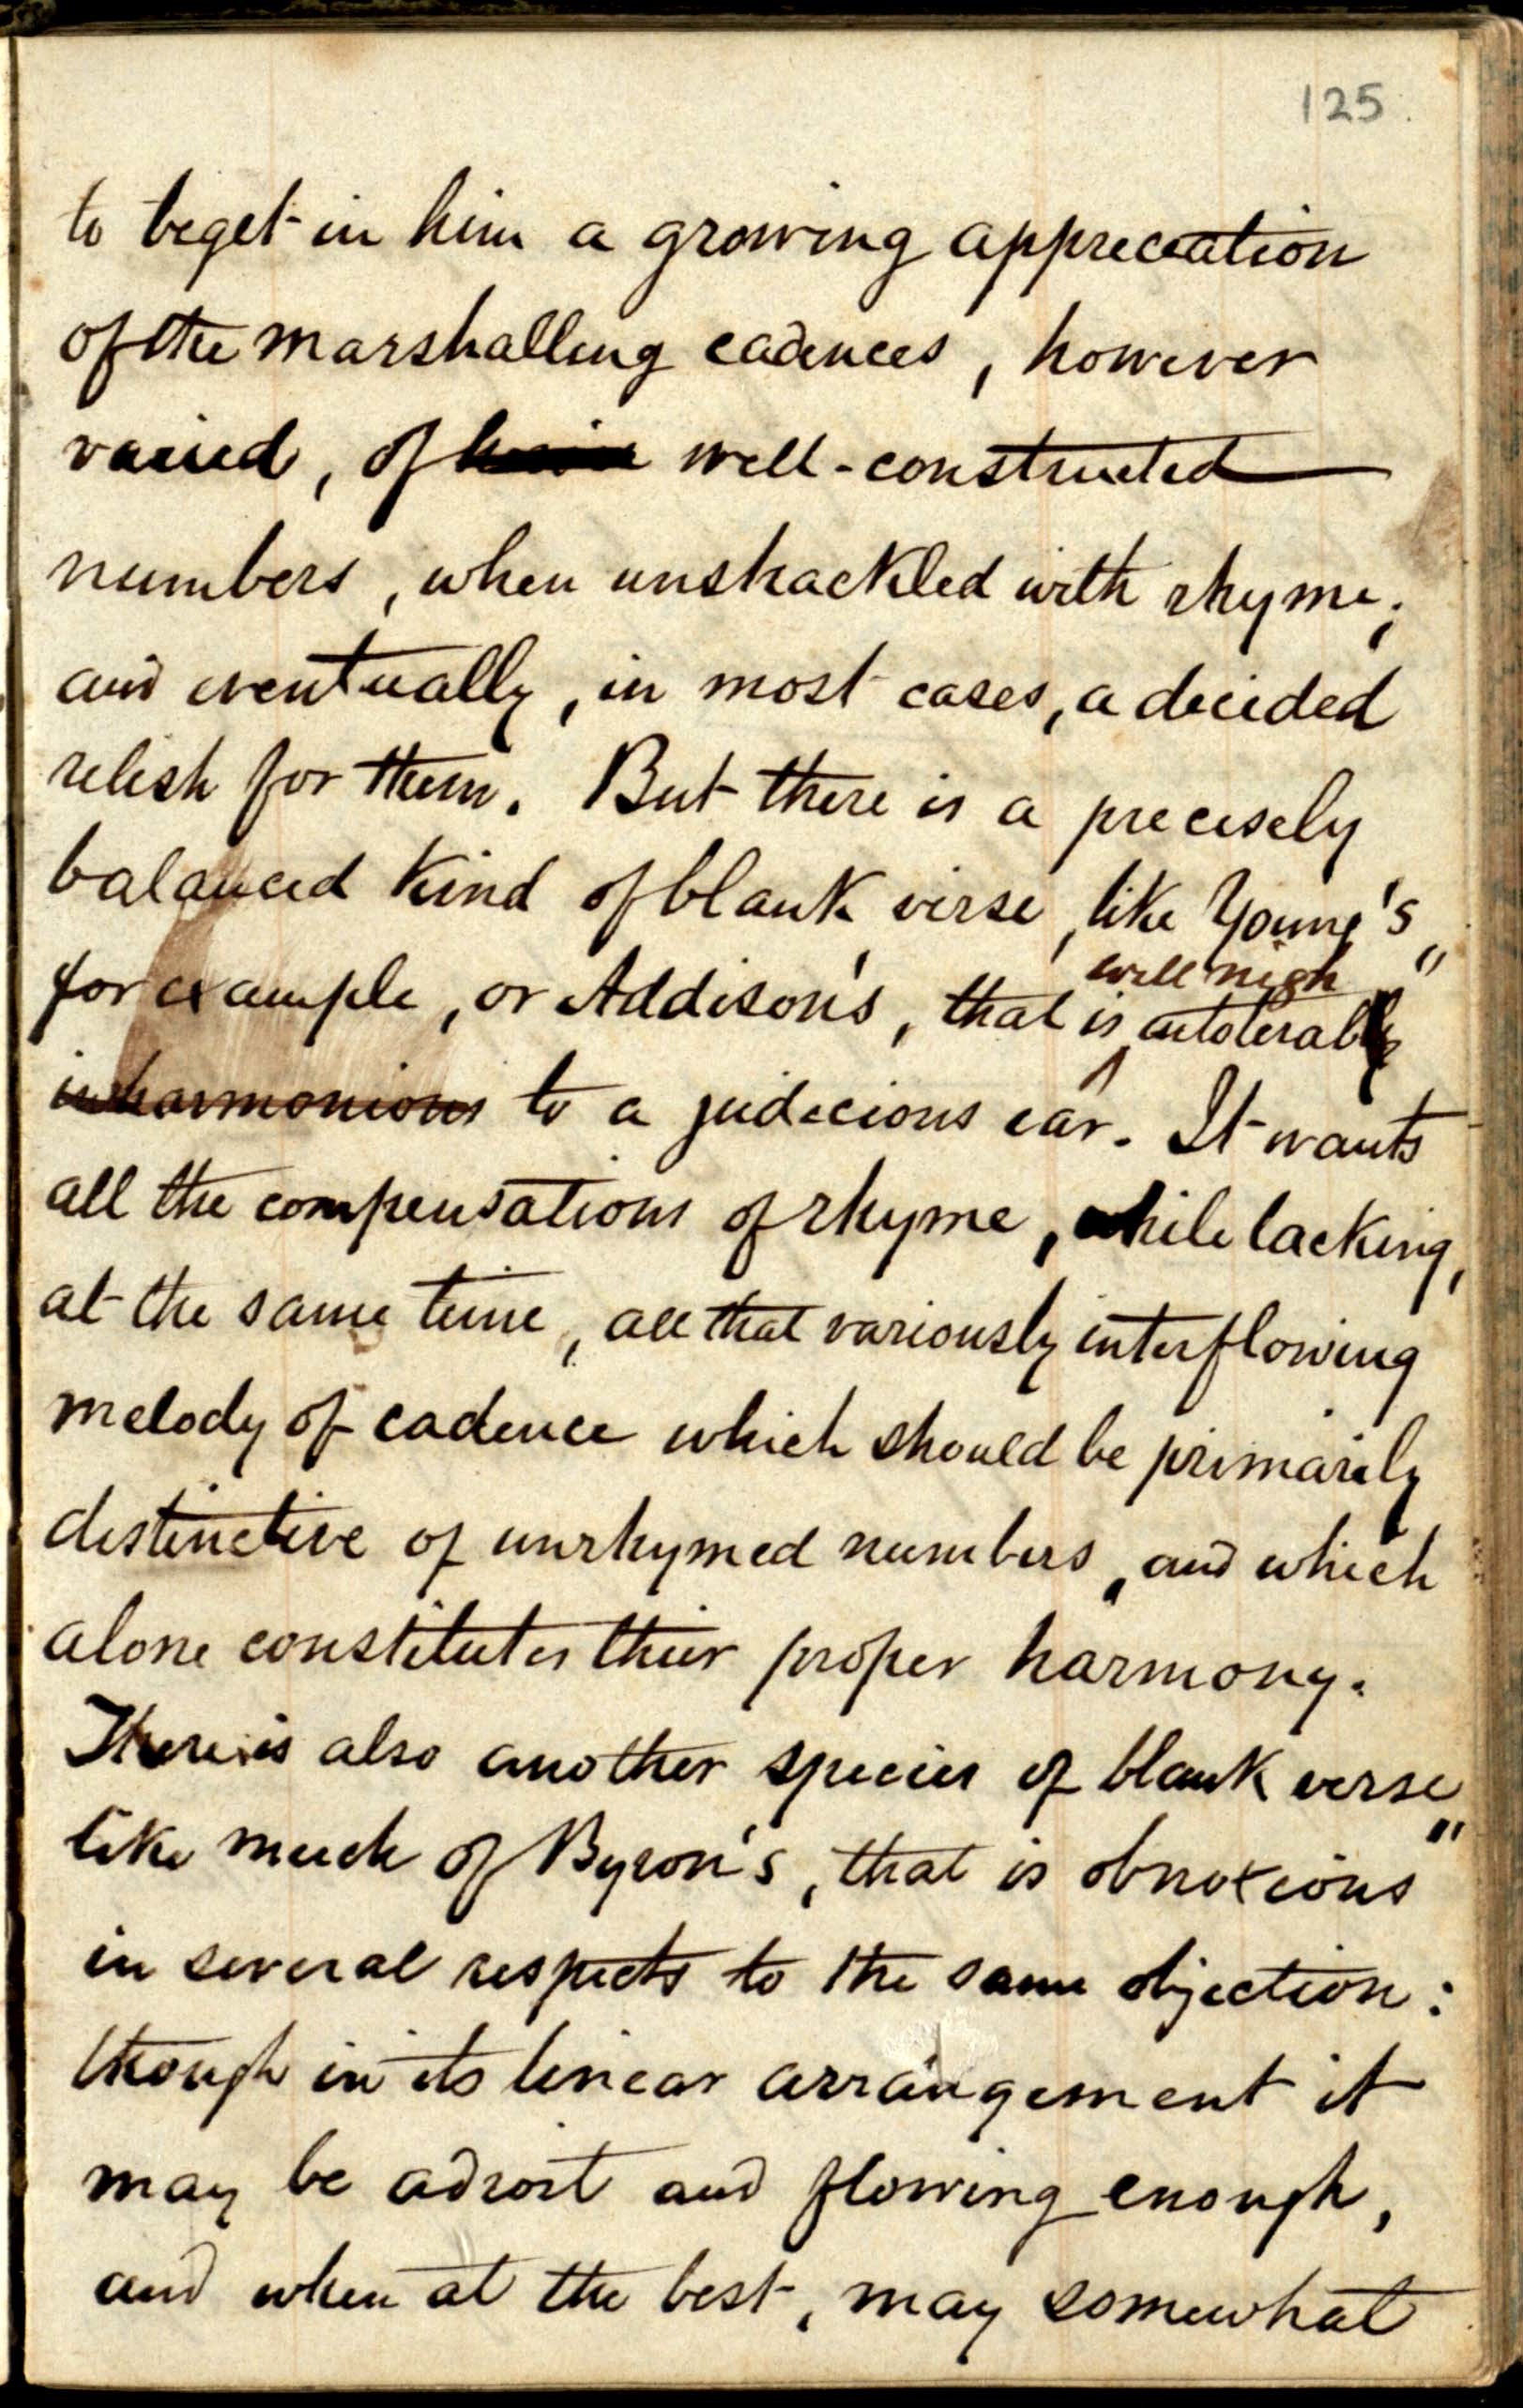 125.
to beget in him a growing appreciation
of the marshalling cadences, however
varied, of well-constructed
numbers, when unshackled with rhyme;
and eventually, in most cases, a decided
relish for them. But there is a precisely
balanced kind of blank verse, like Young's,
well nigh
for example, or Addison's, that is intolerable
inharmonious to a judicious ear. It wants
all the compensations of rhyme, while lacking,
at the same time, all that variously interflowing
melody of cadence which should be primarily
distinctive of unrhymed numbers, and which
alone constitutes their proper harmony.
There is also another species of blank verse,
like much of Byron's, that is obnoxious
in several respects to the same objection:
though in its linear arrangement it
may be adroit and flowing enough,
and when at the best, may somewhat